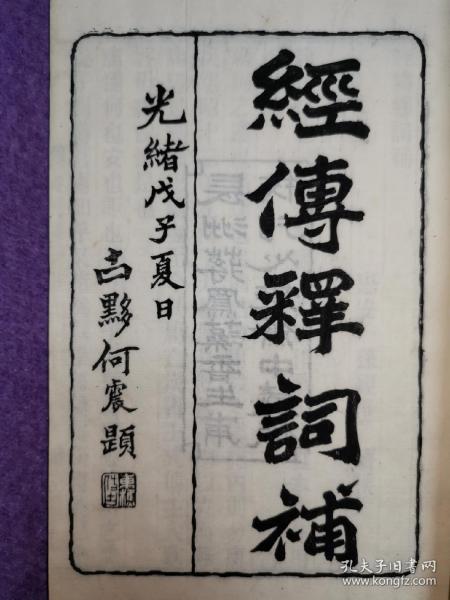 經傳釋詞補
光緒戊子夏日
古黟何震題
孔夫子旧书网
www.kongfz.com